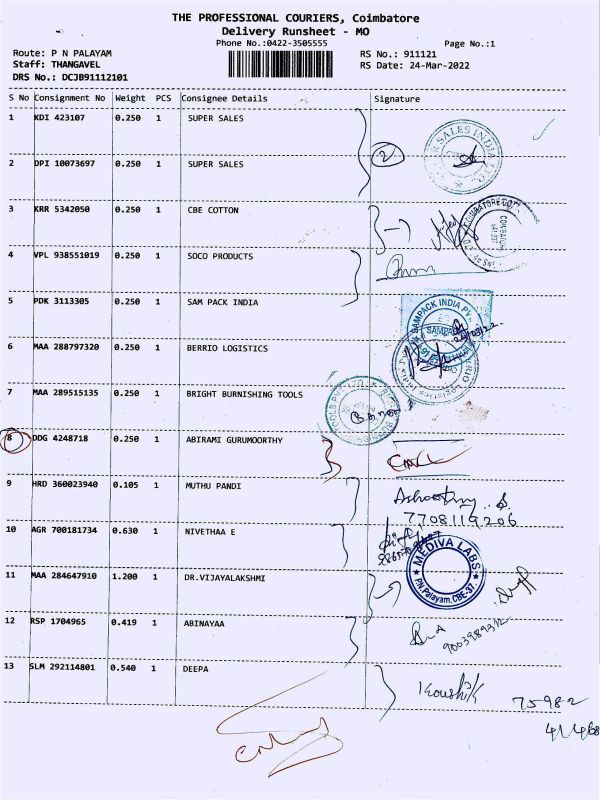 THE PROFESSIONAL COURIERS, Coimbatore
Delivery Runsheet - MO
Phone No.:0422-3505555
Page No.:1
Route: P N PALAYAM
RS No.: 911121
Staff: THANGAVEL
RS Date: 24-Mar-2022
DRS No.: DCJB91112101
S No Consignment No Weight PCS Consignee Details Signature
1 KDI 423107 0.250 1 SUPER SALES
2
SALES INDIA
2 DPI 10073697 0.250 1 SUPER SALES
3 KRR 5342050 0.250 1 CBE COTTON
4 VPL 938551019 0.250 1 SOCO PRODUCTS
5 PDK 3113305 0.250 1 SAM PACK INDIA
SAMPACK INDIA
6 MAA 288797320 0.250 1 BERRIO LOGISTICS
7 MAA 289515135 0.250 1 BRIGHT BURNISHING TOOLS
8 DDG 4248718 0.250 1 ABIRAMI GURUMOORTHY
9 HRD 360023940 0.105 1 MUTHU PANDI
7708119206
10 AGR 700181734 0.630 1 NIVETHAA E
MEDIVA LABS
P.N.Palayam, CBE-37
11 MAA 284647910 1.200 1 DR.VIJAYALAKSHMI
12 RSP 1704965 0.419 1 ABINAYAA
13 SLM 292114801 0.540 1 DEEPA
Koushik
75982